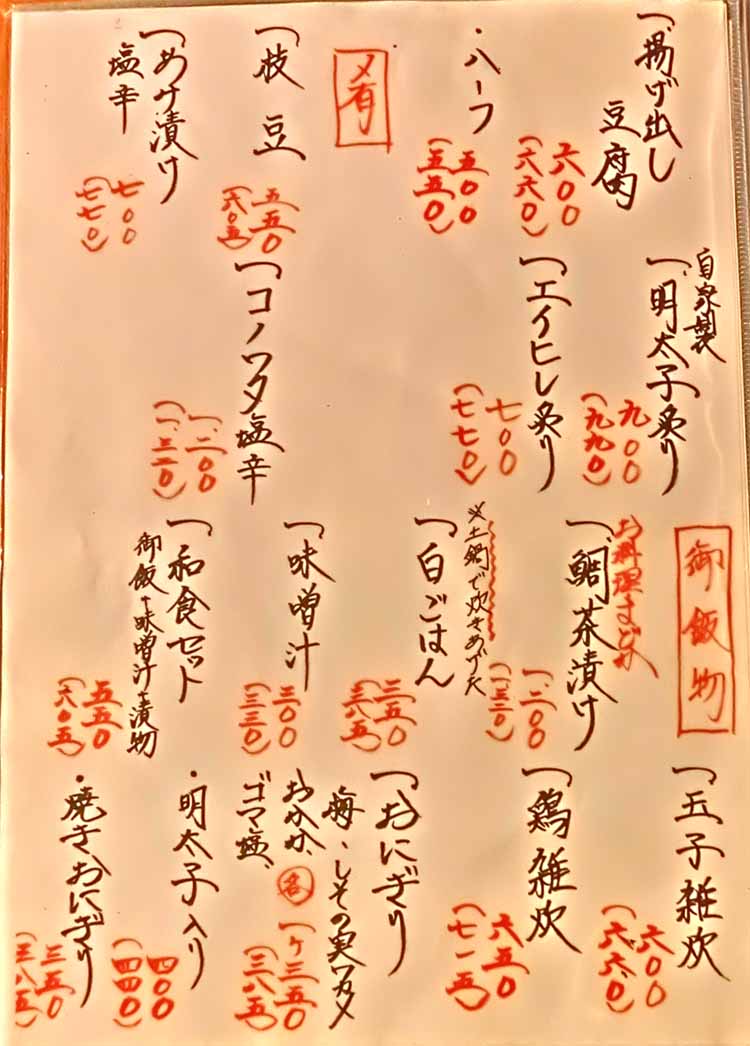 一、揚げ出し
豆腐
六〇〇
(六六〇)
・ハーフ
五〇〇
(五五〇)
肴
一、枝豆
五五〇
(六〇五)
一、あみ漬け
塩辛
七〇〇
(七七〇)
自家製
一、明太子炙り
九〇〇
(九九〇)
一、エイヒレ炙り
七〇〇
(七七〇)
一、コノワタ塩辛
一、二〇〇
(一、三二〇)
御飯物
お料理まどか
一、鯛茶漬け
一、二〇〇
(一、三二〇)
※土鍋で炊きあげた
一、白ごはん
三五〇
(三八五)
一、味噌汁
三〇〇
(三三〇)
一、和食セット
御飯+味噌汁+漬物
五五〇
(六〇五)
一、玉子雑炊
六〇〇
(六六〇)
一、鶏雑炊
六五〇
(七一五)
一、おにぎり
梅、しその実ワカメ
おかか、
ゴマ塩、
各
一ケ三五〇
(三八五)
・明太子入り
四〇〇
(四四〇)
・焼きおにぎり
三五〇
(三八五)